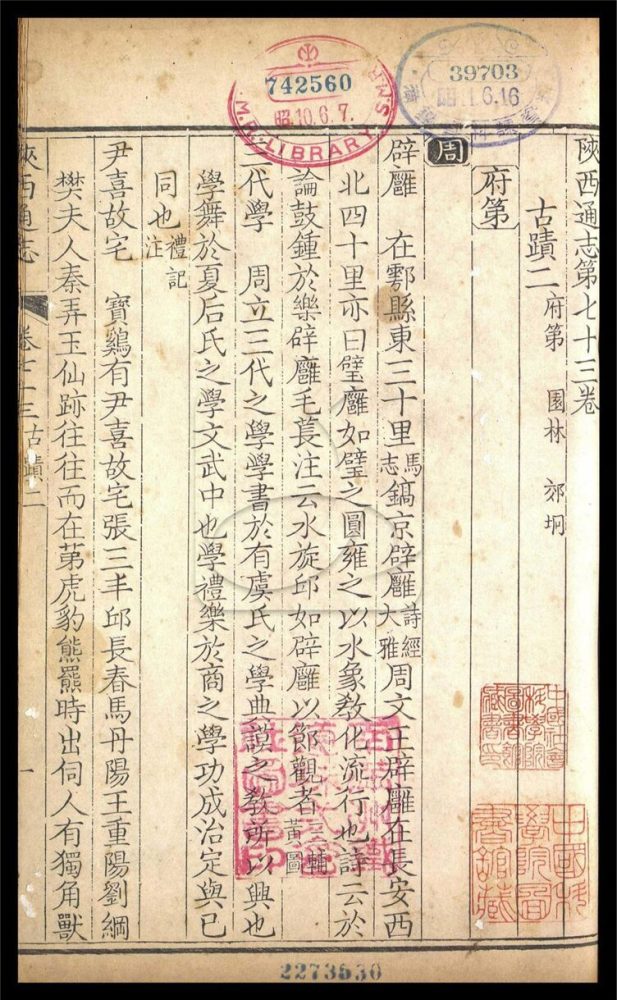 742560
昭10.6.7.
S.M.R.
M.R. LIBRARY
39703
陝西通志第七十三卷
古蹟二 府第 園林 郊坰
府第
周
辟廱 在鄠縣東三十里馬志鎬京辟廱詩經大雅周文王辟廱在長安西
北四十里亦曰璧廱如璧之圓雍之以水象教化流行也詩云於
論鼓鍾於樂辟廱毛萇注云水旋邱如辟廱以節觀者三輔黃圖
三代學 周立三代之學學書於有虞氏之學典謨之教所以興也
學舞於夏后氏之學文武中也學禮樂於商之學功成治定與已
同也禮記注
尹喜故宅 寶鷄有尹喜故宅張三丰邱長春馬丹陽王重陽劉綱
樊夫人秦弄玉仙跡往往而在第虎豹熊羆時出伺人有獨角獸
陝西通志 卷七十三古蹟二 一
中國科
學院圖
書館藏
2273530